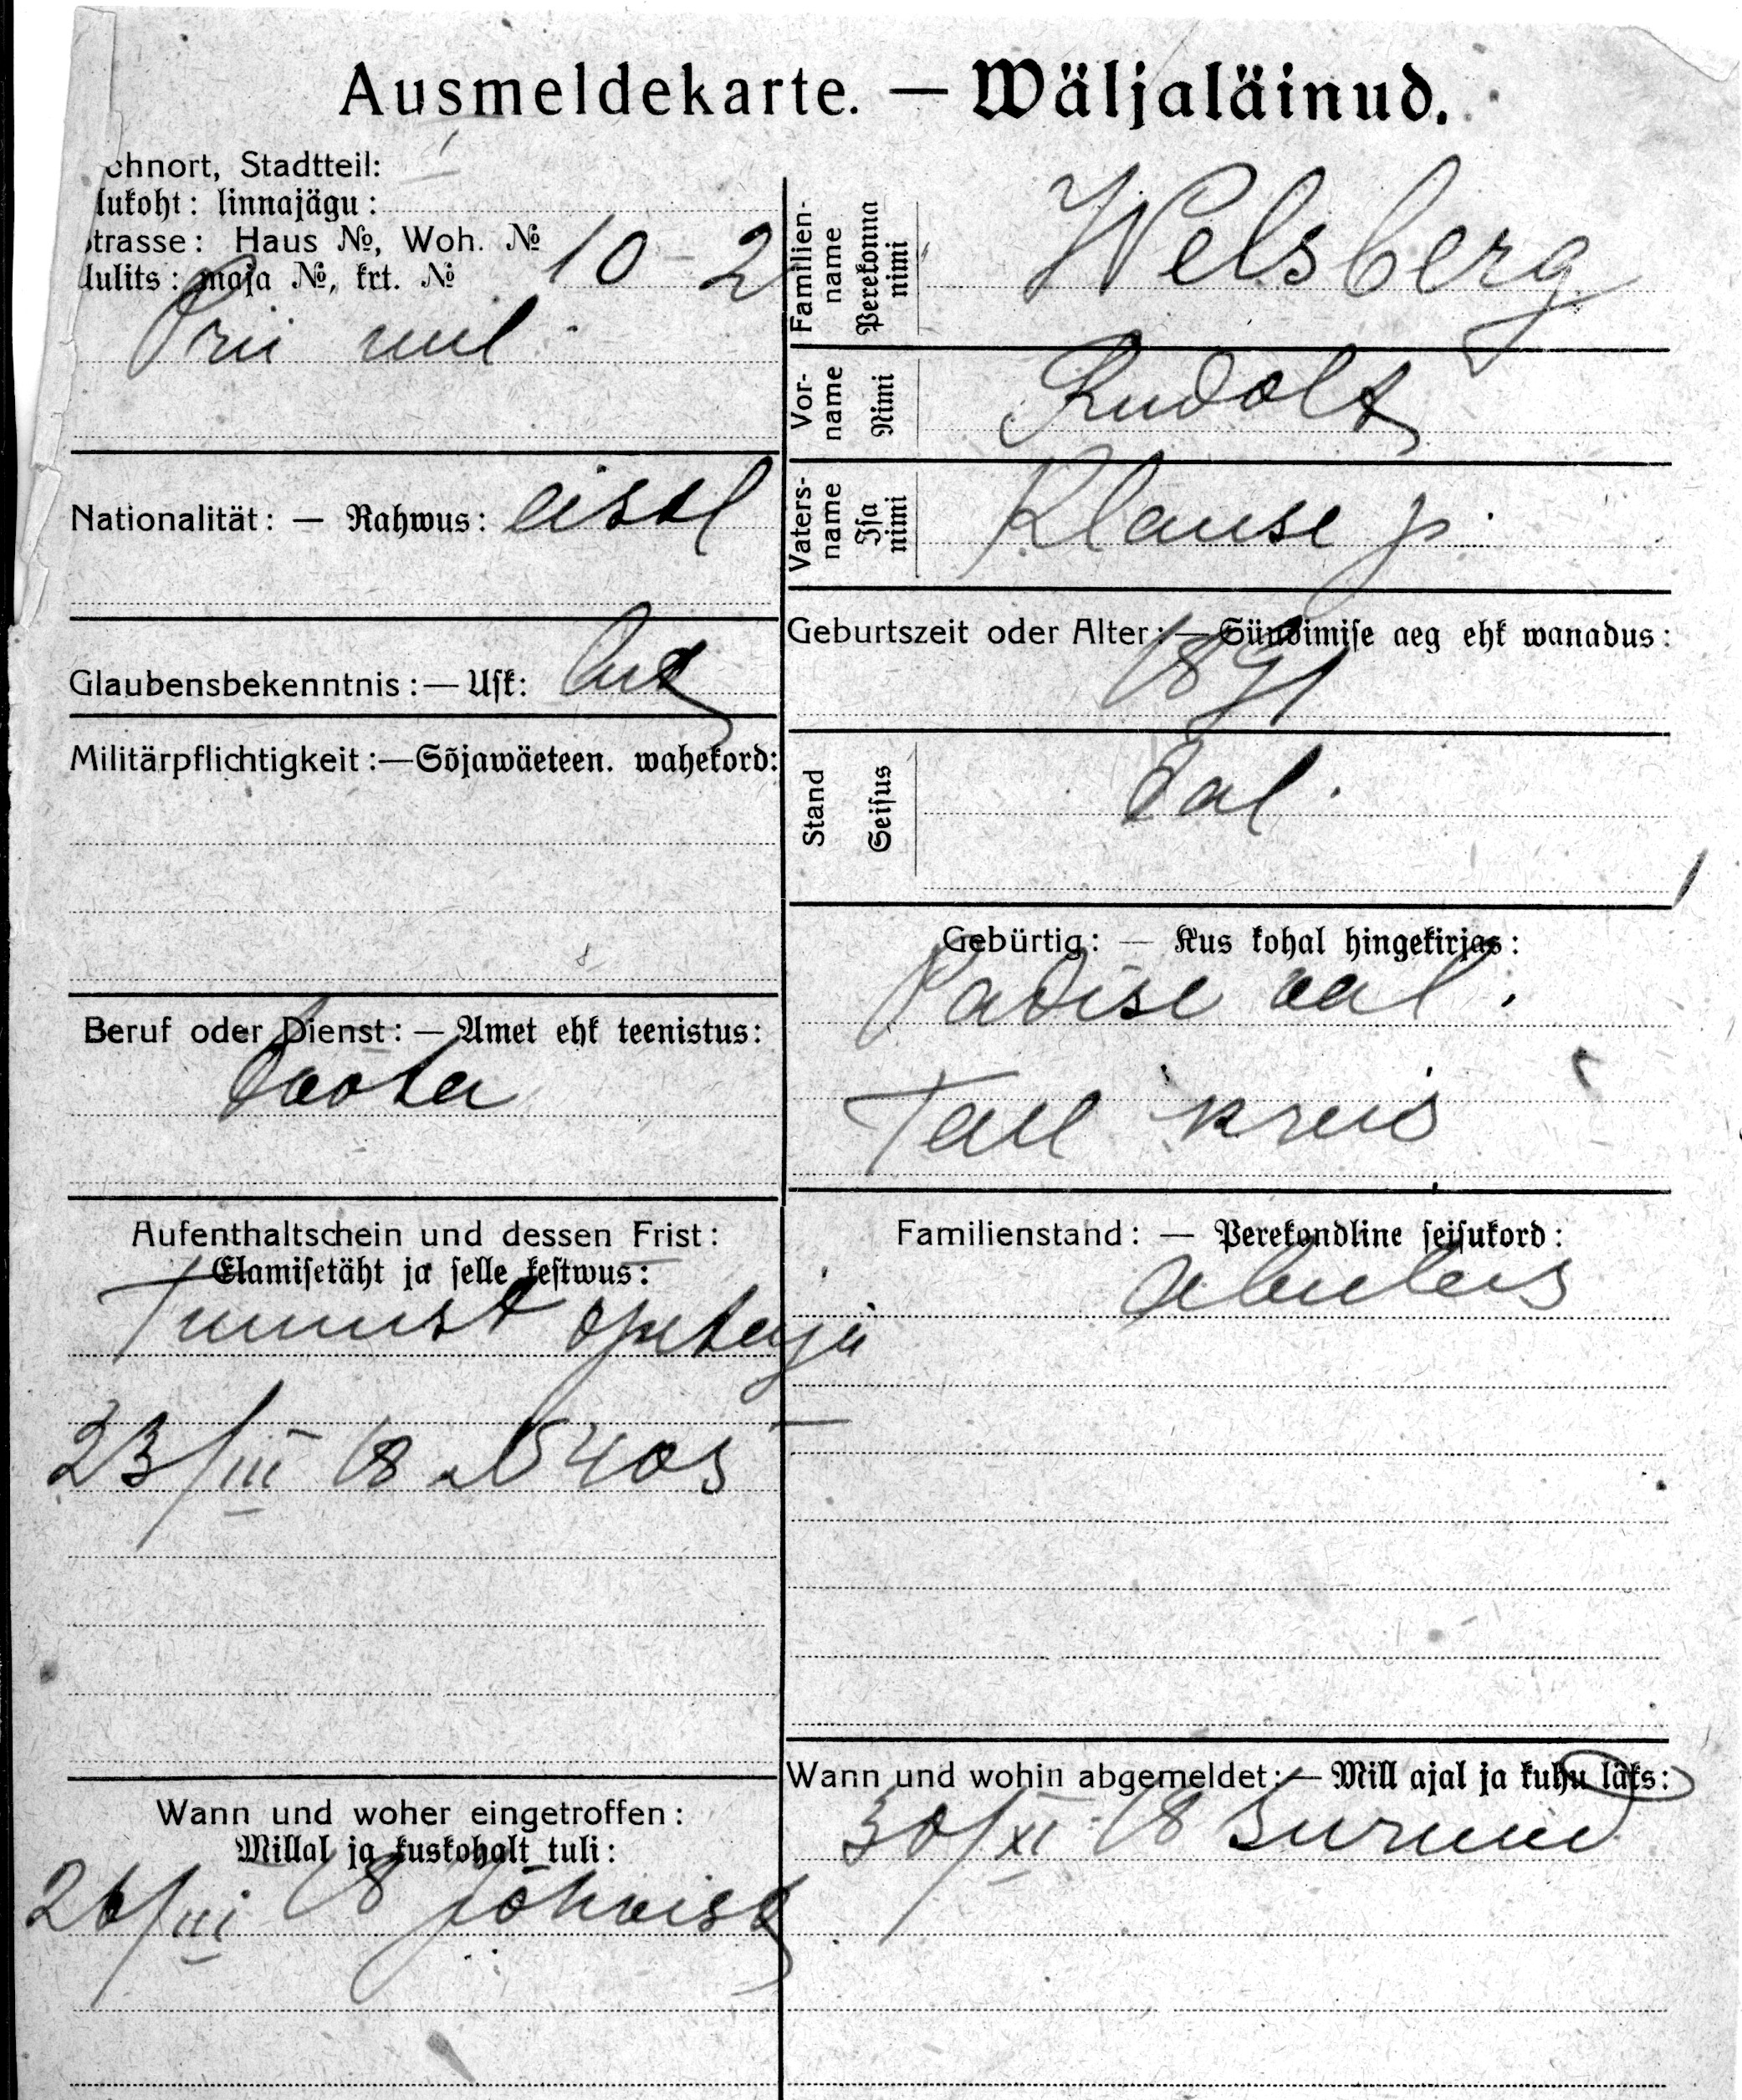 Ausmeldekarte. — Wäljaläinud.
ohnort, Stadtteil:
lukoht: linnajägu:
trasse: Haus №, Woh. №
Uulits: maja №, krt. №
10 - 2
Prii uul
Nationalität: — Rahwus: eistl
Glaubensbekenntnis: — Usk: lut
Militärpflichtigkeit: — Sõjawäeteen. wahekord:
Beruf oder Dienst: — Amet ehk teenistus:
Aufenthaltschein und dessen Frist:
Elamisetäht ja selle kestwus:
Tunnist õpetaja
23/III 18 № 5405
Wann und woher eingetroffen:
Millal ja kuskohalt tuli:
26/III 18 Jõhvist
Familien-name Perekonna nimi
Welsberg
Vor-name Nimi
Rudolf
Vaters-name Isa nimi
Klause p.
Geburtszeit oder Alter: — Sündimise aeg ehk wanadus:
1891
Stand Seisus
tal.
Gebürtig: — Kus kohal hingekirjas:
Padise val.
Tall kreis
Familienstand: — Perekondline seisukord:
abielus
Wann und wohin abgemeldet: — Mill ajal ja kuhu läks:
30/XI 18 Surnud